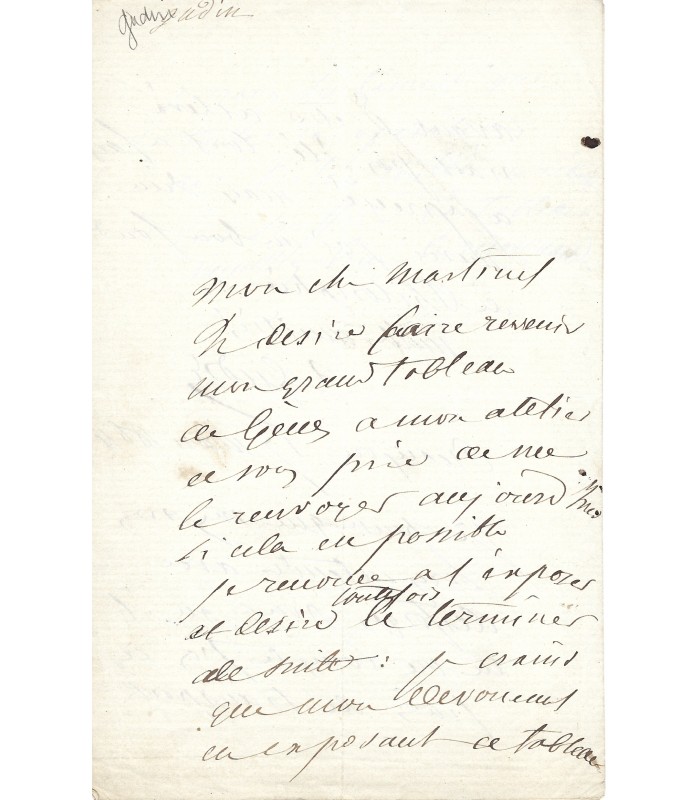 gudin gudin
mon cher Martinet
Je desire faire revenir
mon grand tableau
de Gênes a mon atelier
je vous prie de me
le renvoyer aujourd'hui
si cela est possible
je renonce a l'exposer
et desire toutefois le terminer
de suite : je crains
que mon devouement
en exposant ce tableau